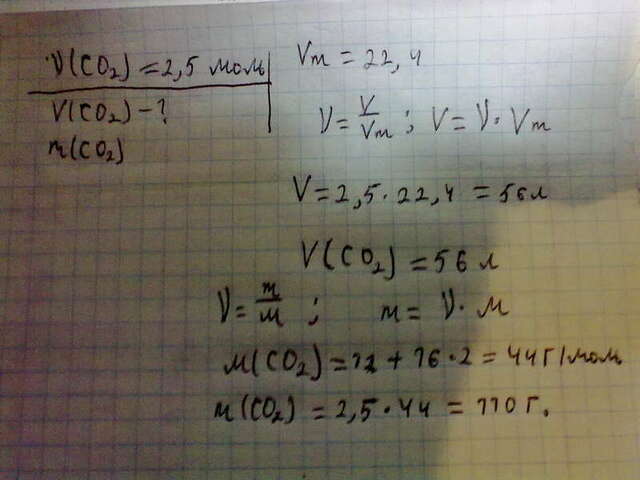 ν(CO₂) = 2,5 моль
V(CO₂) - ?
m(CO₂)
Vm = 22,4
ν = V/Vm ; V = ν · Vm
V = 2,5 · 22,4 = 56л
V(CO₂) = 56 л
ν = m/M ; m = ν · M
M(CO₂) = 12 + 16 · 2 = 44 г/моль
m(CO₂) = 2,5 · 44 = 110 г.